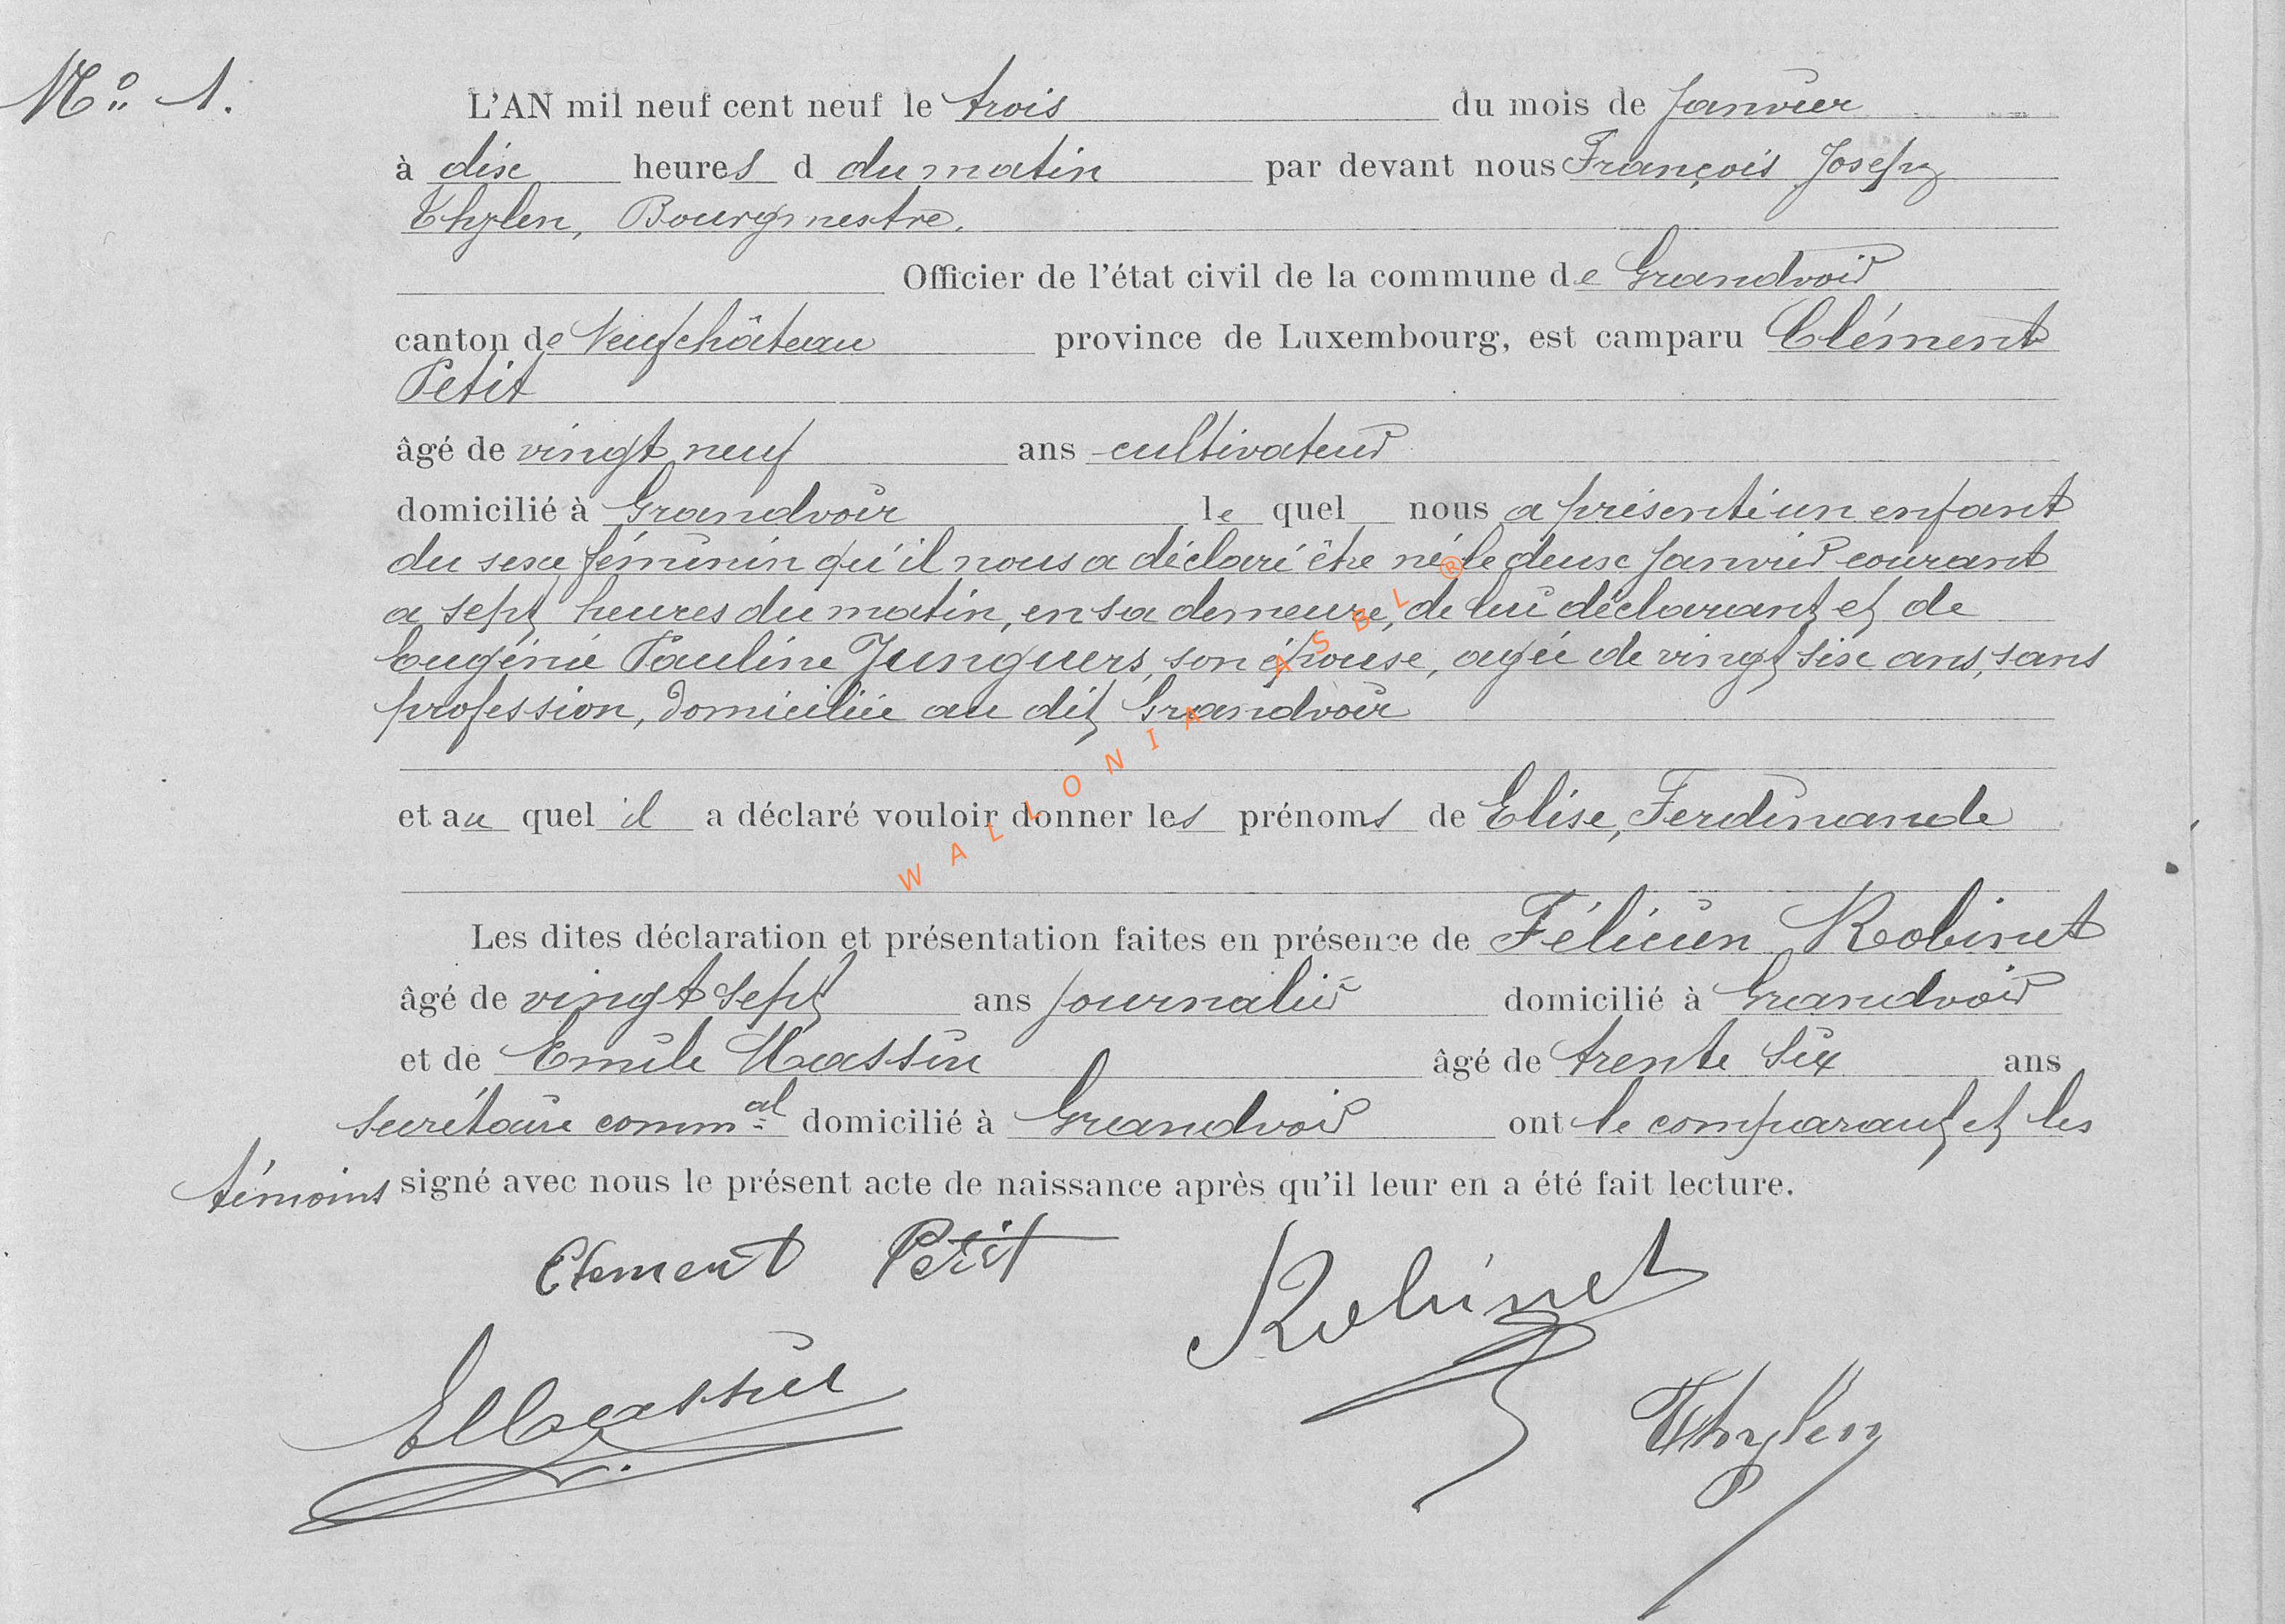 No. 1.
L'AN mil neuf cent neuf le trois du mois de Janvier
à dix heures d du matin par devant nous François Joseph
Thylen, Bourgmestre.
Officier de l'état civil de la commune de Grandvoir
canton de Neufchâteau province de Luxembourg, est camparu Clément
Petit
âgé de vingt neuf ans cultivateur
domicilié à Grandvoir le quel nous a présenté un enfant
du sexe féminin qu'il nous a déclaré être né le deux Janvier courant
a sept heures du matin, en sa demeure, de lui déclarant et de
Eugénie Pauline Junquers, son épouse, agée de vingt six ans, sans
profession, domiciliée au dit Grandvoir
et au quel il a déclaré vouloir donner les prénoms de Elise, Ferdinande
Les dites déclaration et présentation faites en présence de Félicien Robinet
âgé de vingt sept ans journalier domicilié à Grandvoir
et de Emile Massin âgé de trente six ans
secrétaire comm.al domicilié à Grandvoir ont le comparant et les
témoins signé avec nous le présent acte de naissance après qu'il leur en a été fait lecture.
Clement Petit
Robinet
EMassin
Thylen
WALLONIA ASBL ®